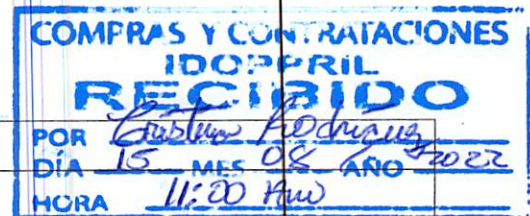 COMPRAS Y CONTRATACIONES
IDOPPRIL
RECIBIDO
POR Cristina Rodríguez
DÍA 15 MES 08 AÑO 2022
HORA 11:00 Am